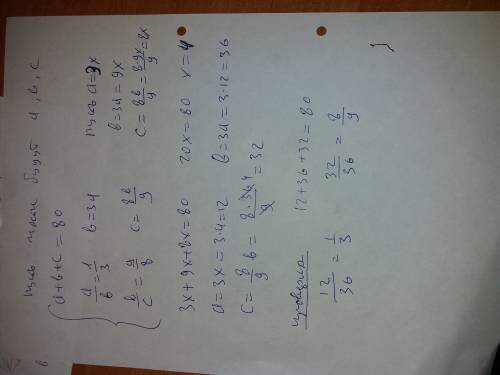 в
пусть числа будут a, в, c
a+в+c=80
a/в = 1/3   в=3a   пусть a=3x
в=3a=9x
в/c = 9/8   c = 8в/9   c = 8в/9 = 8·9x/9 = 8x
3x+9x+8x=80   20x=80   x=4
a=3x=3·4=12   в=3a=3·12=36
c = 8/9 в = 8·36/9 = 32
проверка   12+36+32=80
12/36 = 1/3   32/36 = 8/9